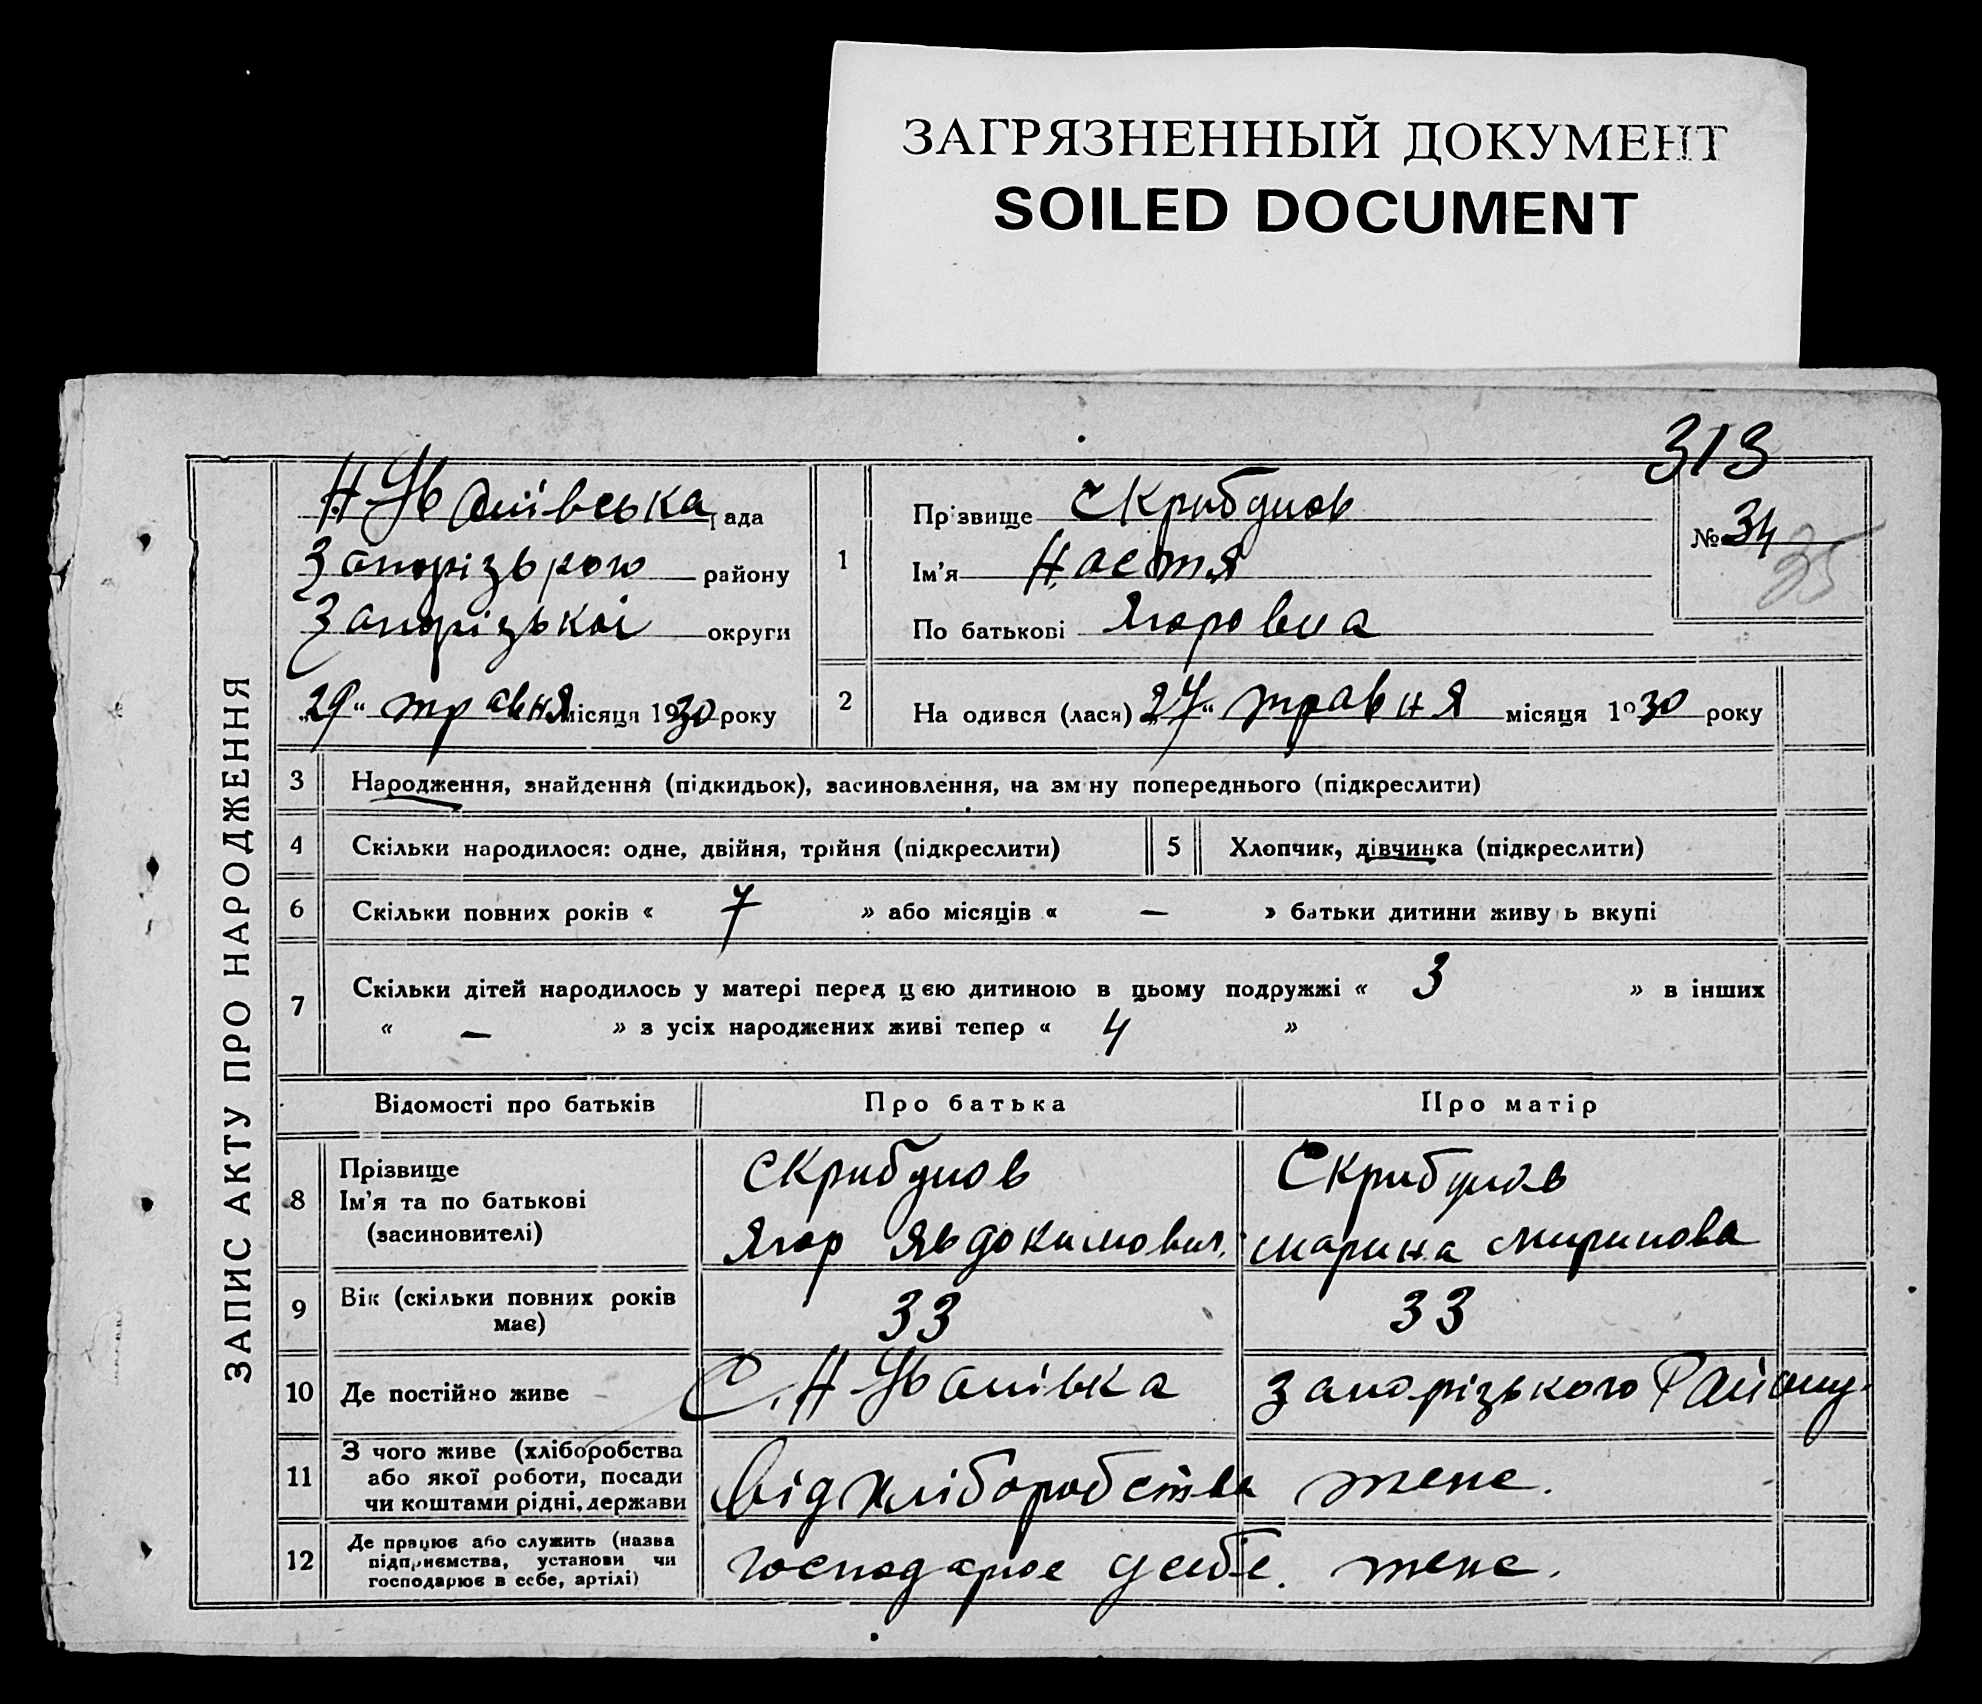 ЗАГРЯЗНЕННЫЙ ДОКУМЕНТ
SOILED DOCUMENT
313
ЗАПИС АКТУ ПРО НАРОДЖЕННЯ
рада
Запорізького району
Запорізької округи
„29“ травня місяця 1930 року
1
Прізвище Скрибунов
Ім'я Настя
По батькові Ягоровна
№ 34
35
2
На одився (лася) „27“ травня місяця 1930 року
3 Народження, знайдення (підкидьок), засиновлення, на зм ну попереднього (підкреслити)
4 Скільки народилося: одне, двійня, трійня (підкреслити)
5 Хлопчик, дівчинка (підкреслити)
6 Скільки повних років « 7 » або місяців « — » батьки дитини живу ь вкупі
7 Скільки дітей народилось у матері перед цією дитиною в цьому подружжі « 3 » в інших
« — » з усіх народжених живі тепер « 4 »
Відомості про батьків Про батька Про матір
8 Прізвище
Ім'я та по батькові
(засиновителі)
Скрибунов
Ягор Явдокимович
Скрибунов
Марина Миринова
9 Вік (скільки повних років має) 33 33
10 Де постійно живе С. Н Іванівка Запорізького Району.
11 З чого живе (хліборобства
або якої роботи, посади
чи коштами рідні, держави
від хліборобства тене.
12 Де працює або служить (назва
підприємства, установи чи
господарює в себе, артілі)
господарює у себе. тене.